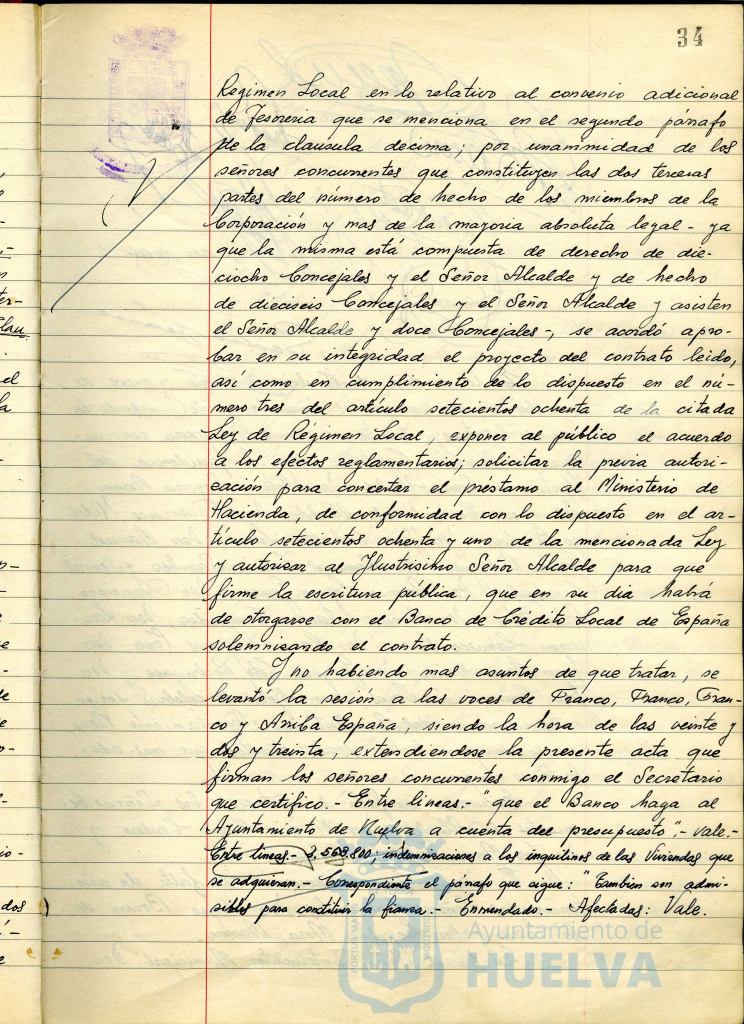 34
Regimen Local en lo relativo al convenio adicional
de Tesoreria que se menciona en el segundo párrafo
de la clausula decima; por unanimidad de los
señores concurrentes que constituyen las dos terceras
partes del número de hecho de los miembros de la
Corporación y mas de la mayoria absoluta legal - ya
que la misma está compuesta de derecho de die-
ciocho Concejales y el Señor Alcalde y de hecho
de dieciseis Concejales y el Señor Alcalde y asisten
el Señor Alcalde y doce Concejales -, se acordó apro-
bar en su integridad el proyecto del contrato leido,
así como en cumplimiento de lo dispuesto en el nú-
mero tres del artículo setecientos ochenta de la citada
Ley de Régimen Local, exponer al público el acuerdo
a los efectos reglamentarios; solicitar la previa autori-
zación para concertar el préstamo al Ministerio de
Hacienda, de conformidad con lo dispuesto en el ar-
tículo setecientos ochenta y uno de la mencionada Ley
y autorizar al Ilustrisimo Señor Alcalde para que
firme la escritura pública, que en su dia habrá
de otorgarse con el Banco de Crédito Local de España
solemnizando el contrato.
Y no habiendo mas asuntos de que tratar, se
levantó la sesión a las voces de Franco, Franco, Fran-
co y Arriba España, siendo la hora de las veinte y
dos y treinta, extendiendose la presente acta que
firman los señores concurrentes conmigo el Secretario
que certifico.- Entre lineas.- "que el Banco haga al
Ayuntamiento de Huelva a cuenta del presupuesto",- vale.-
Entre lineas.- 3.568.800; indemnizaciones a los inquilinos de las Viviendas que
se adquieran.- Correspondiente el párrafo que sigue: "Tambien son admi-
sibles para constituir la fianza.- Enmendado.- Afectadas: Vale.
Ayuntamiento de
HUELVA